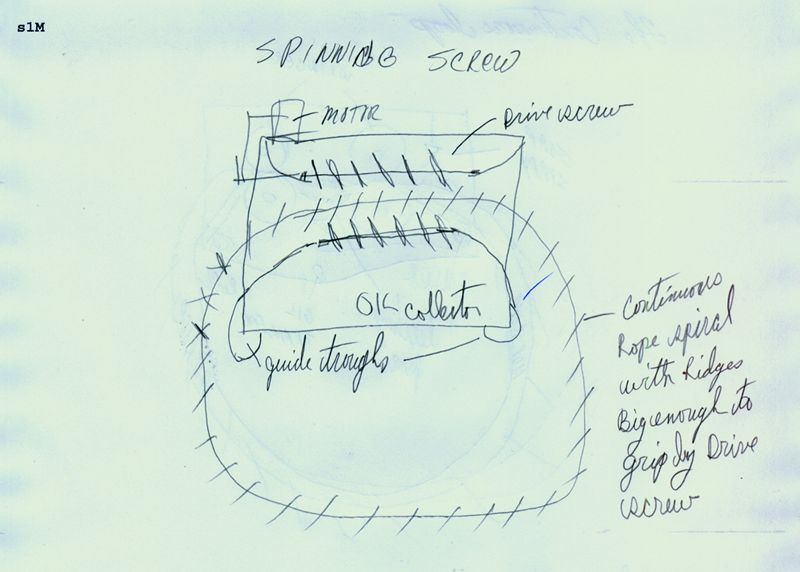 s1M
SPINNING SCREW
MOTOR
Drive screw
OK collector
guide troughs
Continuous
Rope spiral
with Ridges
Big enough to
grip by Drive
screw